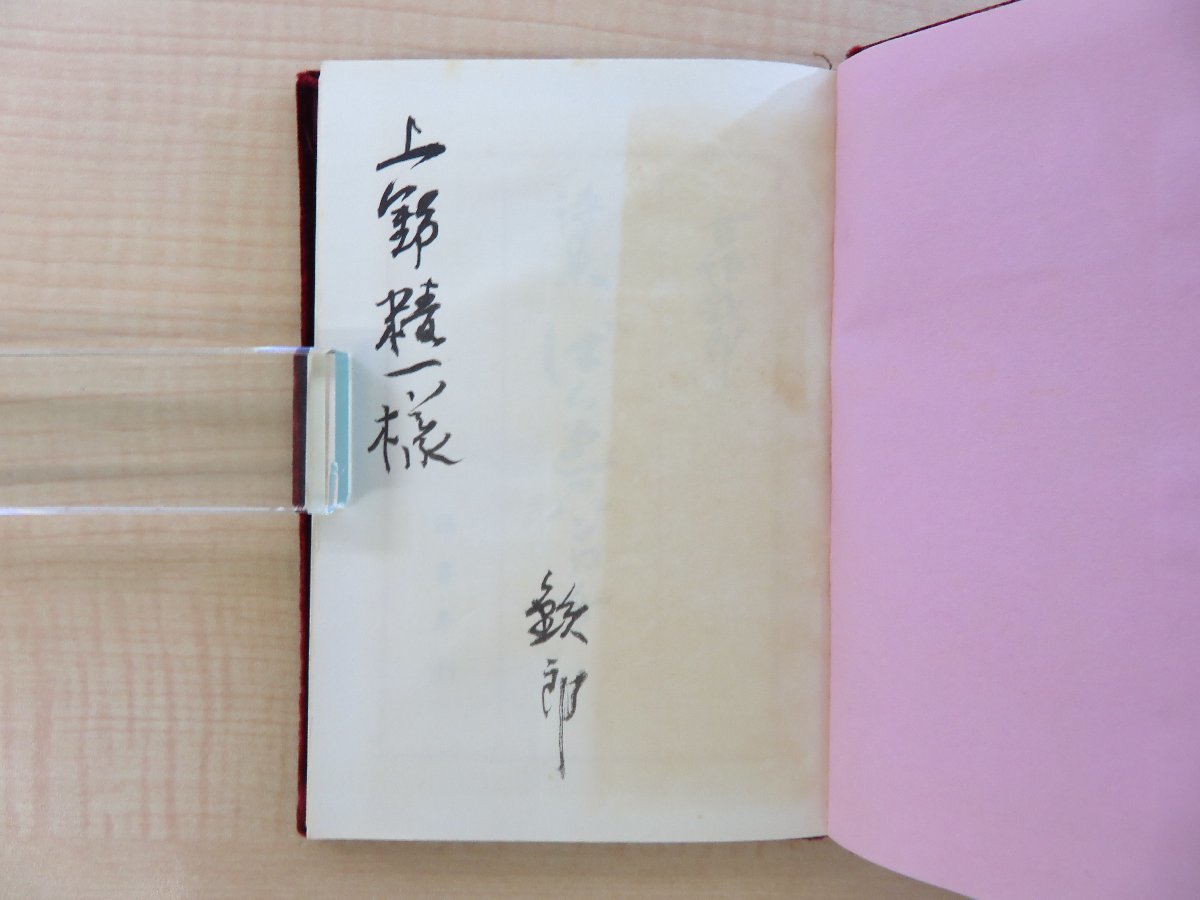 上野精一様
鉄郎